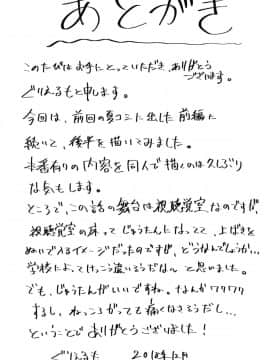 あとがき
このたびはお手にとっていただき、ありがとう
ございます。
ぐりえるもと申します。
今回は、前回の夏コミに出した前編に
続いて、後半を描いてみました。
本番有りの内容を同人で描くのは久しぶり
な気もします。
ところで、この話の舞台は視聴覚室なのですが、
視聴覚室の床ってじゅうたんになってて、上ばきを
ぬいで入るイメージだったのですが、どうなんでしょうか…
学校によってけっこう違いそうだな〜と思いました。
でも、じゅうたんがいいですね。なんかワクワク
するし、ねっころがってても痛くなさそうだし…
ということでありがとうございました!
ぐりえるも